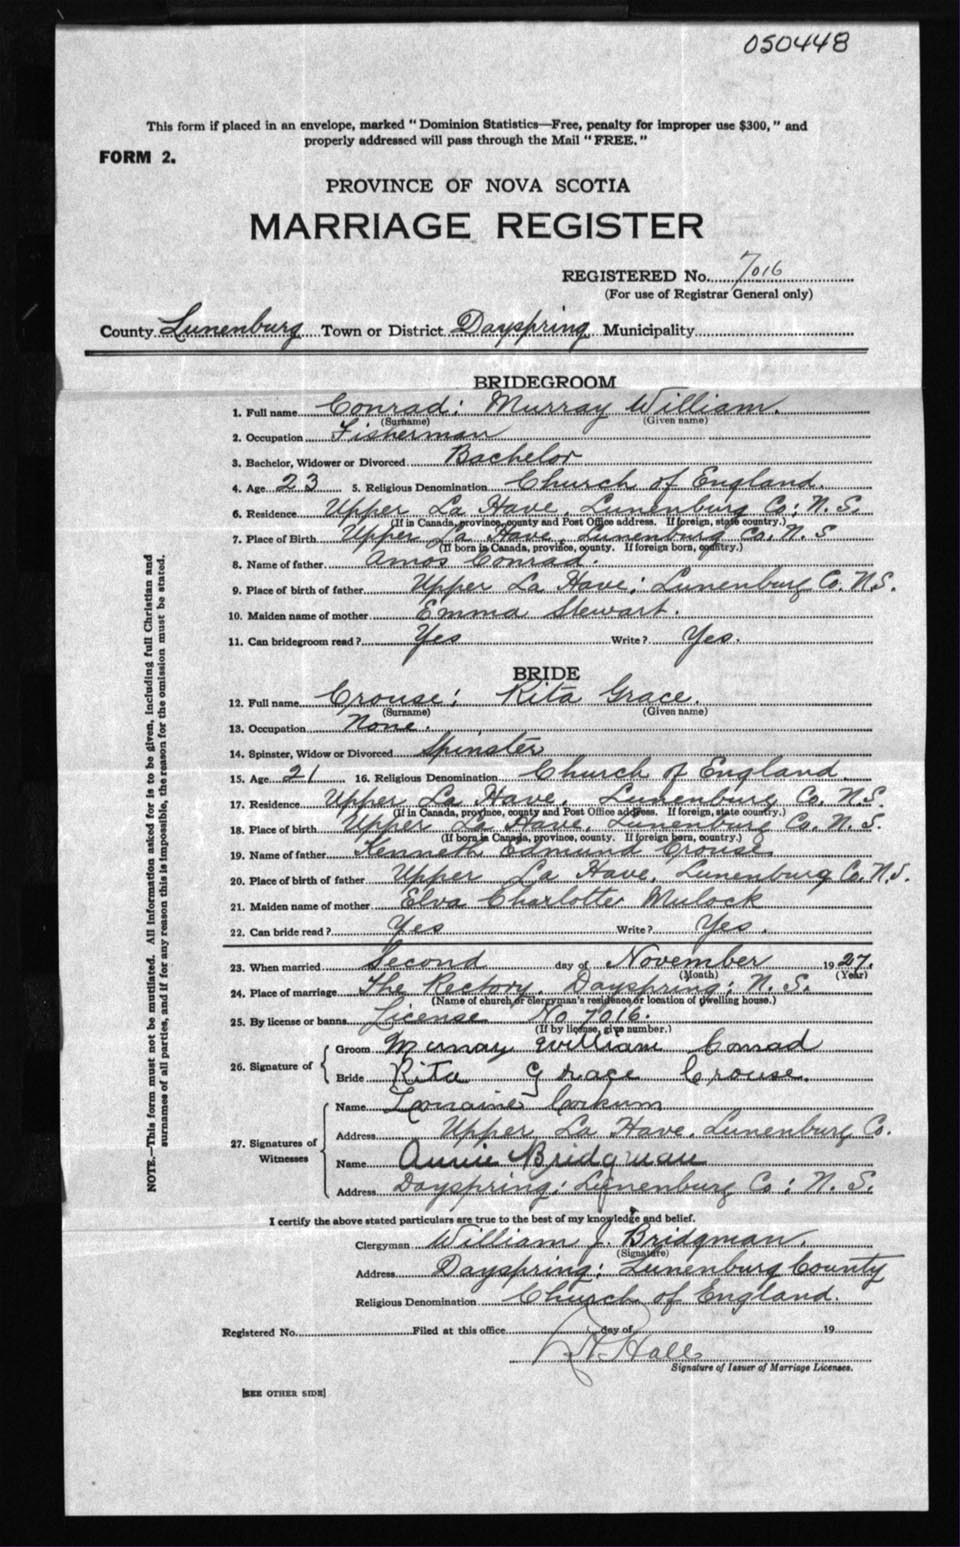 050448
This form if placed in an envelope, marked "Dominion Statistics—Free, penalty for improper use $300," and
properly addressed will pass through the Mail "FREE."
FORM 2.
PROVINCE OF NOVA SCOTIA
MARRIAGE REGISTER
REGISTERED No. 7016
(For use of Registrar General only)
County Lunenburg Town or District Dayspring Municipality
BRIDEGROOM
1. Full name Conrad; Murray William.
(Surname) (Given name)
2. Occupation Fisherman
3. Bachelor, Widower or Divorced Bachelor
4. Age 23 5. Religious Denomination Church of England.
6. Residence Upper La Have, Lunenburg Co; N. S.
(If in Canada, province, county and Post Office address. If foreign, state country.)
7. Place of Birth Upper La Have, Lunenburg Co. N. S
(If born in Canada, province, county. If foreign born, country.)
8. Name of father Amos Conrad.
9. Place of birth of father Upper La Have; Lunenburg Co. N.S.
10. Maiden name of mother Emma Stewart.
11. Can bridegroom read? Yes Write? Yes.
BRIDE
12. Full name Crouse; Rita Grace.
(Surname) (Given name)
13. Occupation None.
14. Spinster, Widow or Divorced Spinster
15. Age 21 16. Religious Denomination Church of England
17. Residence Upper La Have, Lunenburg Co. N.S.
(If in Canada, province, county and Post Office address. If foreign, state country.)
18. Place of birth Upper La Have, Lunenburg Co. N. S.
(If born in Canada, province, county. If foreign born, country.)
19. Name of father Kenneth Edmund Crouse
20. Place of birth of father Upper La Have, Lunenburg Co. N.S.
21. Maiden name of mother Elva Charlotte Mulock
22. Can bride read? Yes Write? Yes.
23. When married Second day of November 1927.
(Month) (Year)
24. Place of marriage The Rectory, Dayspring; N. S.
(Name of church or clergyman's residence or location of dwelling house.)
25. By license or banns License No 7016.
(If by license, give number.)
26. Signature of
Groom Murray William Conrad
Bride Rita Grace Crouse.
27. Signatures of Witnesses
Name Lorraine Corkum
Address Upper La Have, Lunenburg Co.
Name Annie Bridgman
Address Dayspring; Lunenburg Co; N. S.
I certify the above stated particulars are true to the best of my knowledge and belief.
Clergyman William J. Bridgman.
(Signature)
Address Dayspring; Lunenburg County
Religious Denomination Church of England.
Registered No. Filed at this office day of 19
Hall
Signature of Issuer of Marriage Licenses.
[SEE OTHER SIDE]
NOTE.—This form must not be mutilated. All information asked for is to be given, including full Christian and
surnames of all parties, and if for any reason this is impossible, the reason for the omission must be stated.